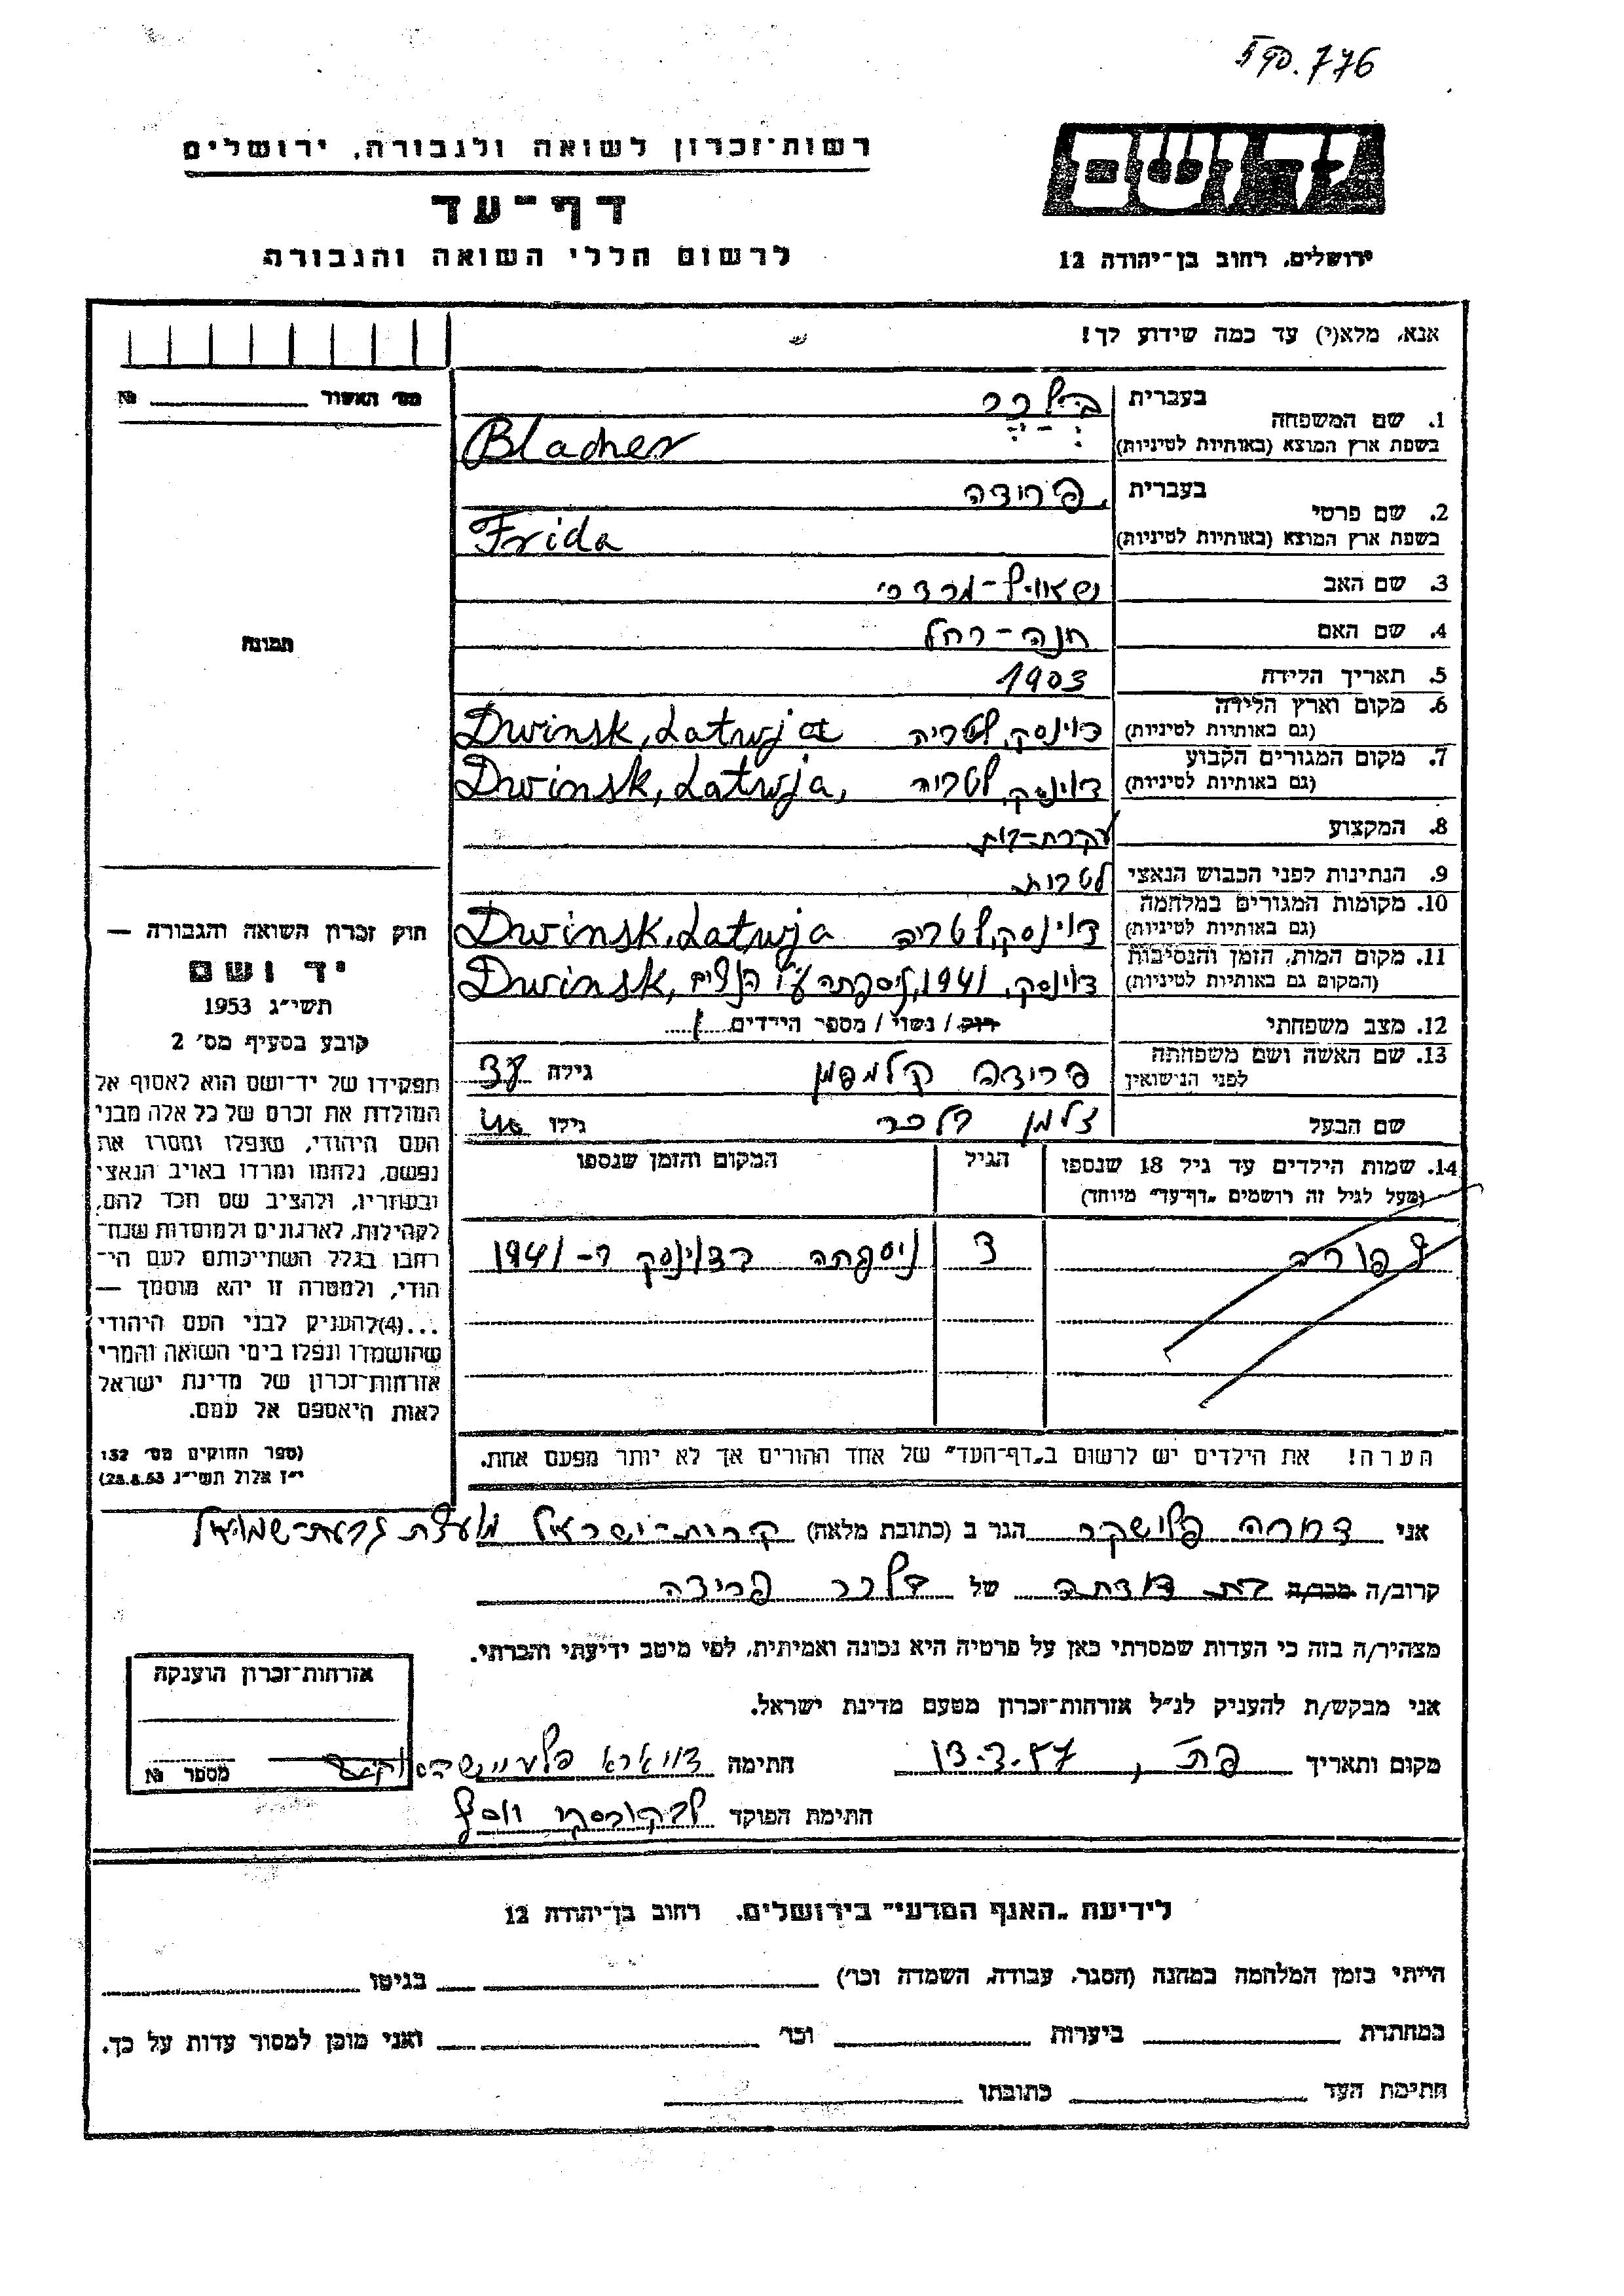 590.776
רשות־זכרון לשואה ולגבורה, ירושלים
דף־עד
לרשום חללי השואה והגבורה
יד ושם
ירושלים, רחוב בן־יהודה 12
אנא, מלא(י) עד כמה שידוע לך!
מס' האשור №
תמונה
1. שם המשפחה
בעברית בלכר
בשפת ארץ המוצא (באותיות לטיניות) Blacher
2. שם פרטי
בעברית פרידה
בשפת ארץ המוצא (באותיות לטיניות) Frida
3. שם האב מרדכי
4. שם האם חנה-רחל
5. תאריך הלידה 1903
6. מקום וארץ הלידה
(גם באותיות לטיניות) דוינסק, לטביה Dwinsk, Latwja
7. מקום המגורים הקבוע
(גם באותיות לטיניות) דוינסק, לטביה Dwinsk, Latwja,
8. המקצוע עקרת-בית
9. הנתינות לפני הכבוש הנאצי לטבית
10. מקומות המגורים במלחמה
(גם באותיות לטיניות) דוינסק, לטביה Dwinsk, Latwja
11. מקום המות, הזמן והנסיבות
(המקום גם באותיות לטיניות) דוינסק, 1941, ניספתה ע"י הנצים Dwinsk,
12. מצב משפחתי רוק / נשוי / מספר הילדים 1
13. שם האשה ושם משפחתה
לפני הנישואין פרידה קלמפמן גילה 38
שם הבעל זלמן בלכר גילו
14. שמות הילדים עד גיל 18 שנספו
(מעל לגיל זה רושמים „דף־עד" מיוחד)
הגיל
המקום והזמן שנספו
צפורה 3 ניספתה בדוינסק ב-1941
הערה! את הילדים יש לרשום ב„דף־העד" של אחד ההורים אך לא יותר מפעם אחת.
חוק זכרון השואה והגבורה —
יד ושם
תשי"ג 1953
קובע בסעיף מס' 2
תפקידו של יד־ושם הוא לאסוף אל
המולדת את זכרם של כל אלה מבני
העם היהודי, שנפלו ומסרו את
נפשם, נלחמו ומרדו באויב הנאצי
ובעוזריו, ולהציב שם וזכר להם,
לקהילות, לארגונים ולמוסדות שנח־
רבו בגלל השתייכותם לעם הי־
הודי, ולמטרה זו יהא מוסמך —
...(4)להעניק לבני העם היהודי
שהושמדו ונפלו בימי השואה והמרי
אזרחות־זכרון של מדינת ישראל
לאות היאספם אל עמם.
(ספר החוקים מס' 132
י"ז אלול תשי"ג 28.8.53)
אני הגר ב (כתובת מלאה) קרית-ישראל מועצת גבעת-שמואל
קרוב/ה מכר/ה בת דודתה של בלכר פרידה
מצהיר/ה בזה כי העדות שמסרתי כאן על פרטיה היא נכונה ואמיתית, לפי מיטב ידיעתי והכרתי.
אני מבקש/ת להעניק לנ"ל אזרחות־זכרון מטעם מדינת ישראל.
מקום ותאריך פת , 13.3.57 חתימה
חתימת הפוקד
אזרחות־זכרון הוענקה
מספר №
לידיעת „האגף המדעי" בירושלים, רחוב בן־יהודה 12
הייתי בזמן המלחמה במחנה (הסגר, עבודה, השמדה וכו') בגיטו
במחתרת ביערות וכו' ואני מוכן למסור עדות על כך.
חתימת העד כתובתו